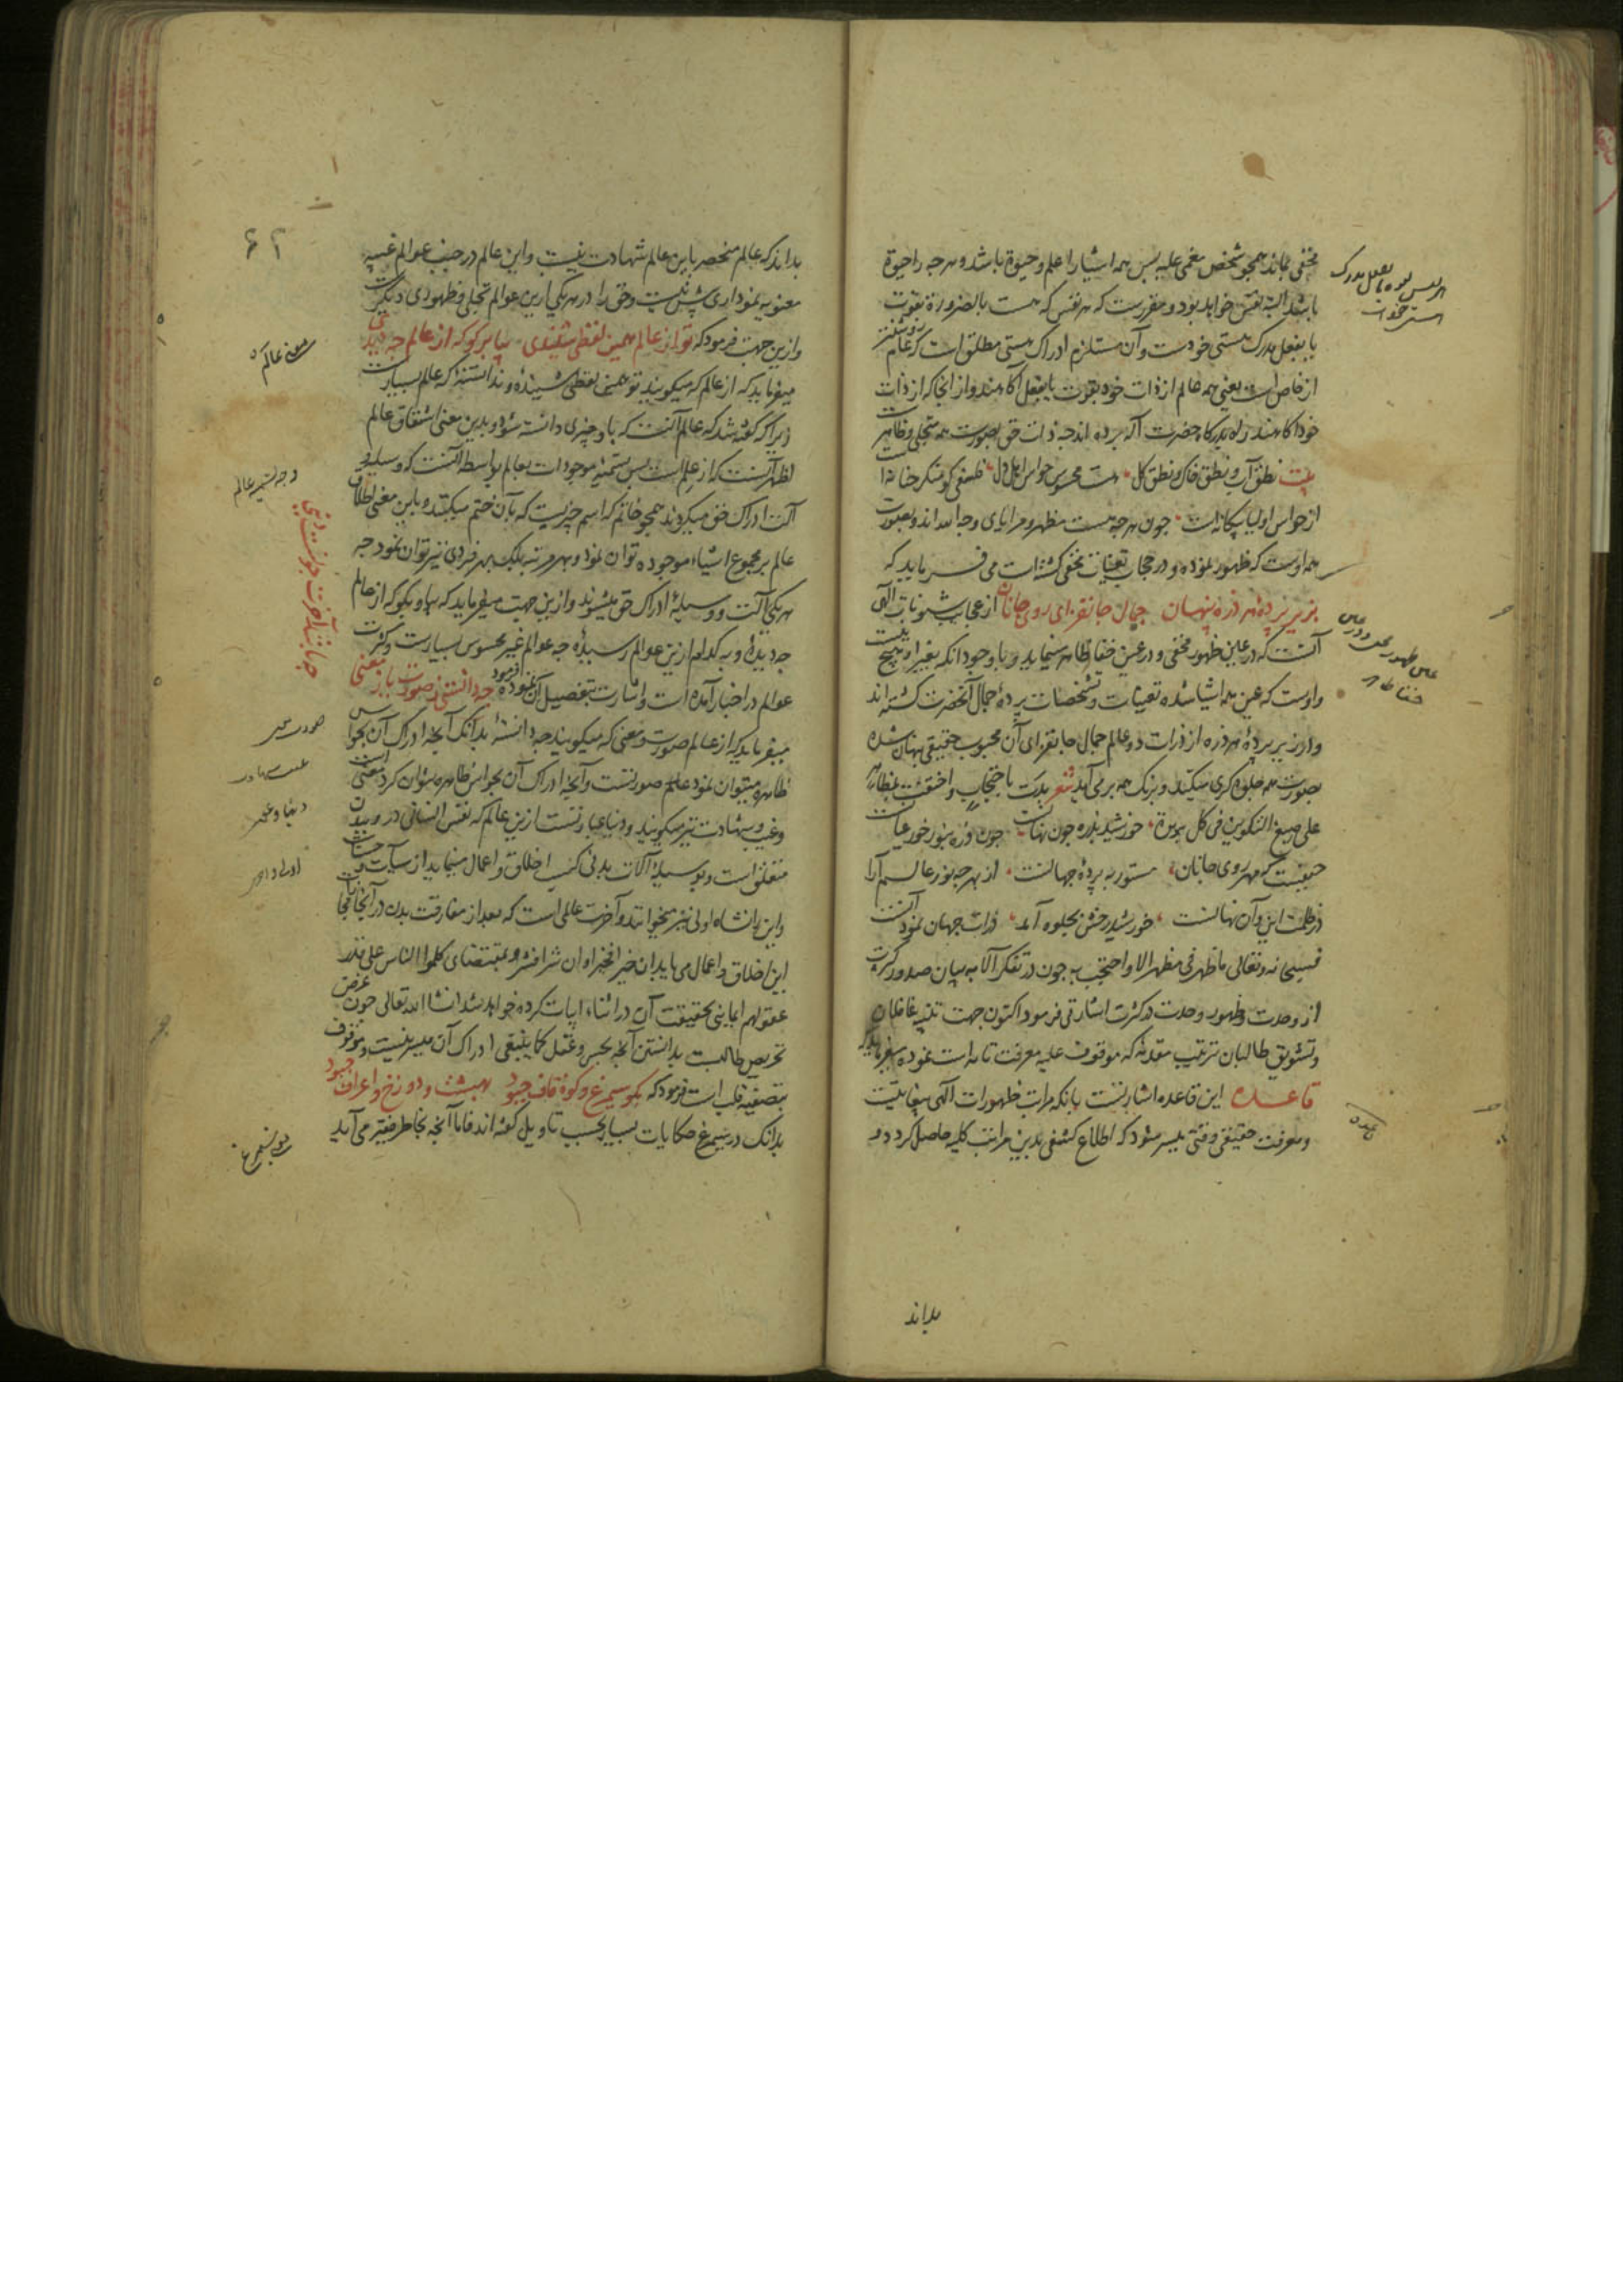 مخفی بماند همچو شخص مغمی علیه پس همه اشیا را علم و حیوة باشد و هرچه را حیوة
باشد البته نفس خواهد بود و مقررست که هر نفس که هست بالضرورة بقوت
یا بفعل مدرک هستی خودست و آن مستلزم ادراک هستی مطلق است که عام
از خاص است یعنی همه عالم از ذات خود بقوت یا بفعل آگاهند و از آنجا که از ذات
خود آگاهند راه بدرگاه حضرت آله برده اند چه ذات حق بصورت همه متجلی و ظاهر
بیت نطق آب و نطق خاک و نطق گل هست محسوس حواس اهل دل فلسفی کو منکر حنانه
از حواس اولیا بیگانه است چون هرچه هست مظهر و مرایای وجه الله اند و بصورت
همه اوست که ظهور نموده و در حجاب تعینات مخفی گشته است می فرماید که
بزیر پرده هر ذره پنهان جمال جانفزای روی جانان از عجایب شئونات الهی
آنست که در عین ظهور مخفی و در عین خفا ظاهر مینماید و با وجود آنکه بغیر او هیچ نیست
و اوست که عین همه اشیا شده تعینات و تشخصات پرده جمال آنحضرت گشته اند
و در زیر پرده هر ذره از ذرات دو عالم جمال جانفزای آن محبوب حقیقی پنهان شده
بصورت همه جلوه گری میکند و برنگ همه بر می آید شعر بدت باحتجاب و اختفت بمظاهر
علی صبغ التکوین فی کل برزة خورشید بذره چون نهانست چون ذره بنور خور عیانست
حقیقت که مهر روی جانان مستور به پرده جهانست از بهر چه نور عالم آرا
در ظلمت این و آن نهانست خورشید رخش بجلوه آمد ذرات جهان نمود آنست
فسبحانه و تعالی ما ظهر فی مظهر الا و احتجب به چون در تفکر آلا به بیان صدور کثرت
از وحدت و ظهور وحدت در کثرت اشارتی فرمود اکنون جهت تنبیه غافلان
و تشویق طالبان ترتیب مقدمه که موقوف علیه معرفت تامه است نموده میفرماید که
قاعده این قاعده اشارتست بانکه مراتب ظهورات الهی بینهایتست
و معرفت حقیقی وقتی میسر شود که اطلاع کشفی بدین مراتب کلیه حاصل گردد و
بداند
قاعده
۶۲
بداند که عالم منحصر باین عالم شهادت نیست و این عالم در جنب عوالم غیبیه
معنویه نموداری بیش نیست و حق را در هر یکی ازین عوالم تجلی و ظهوری دیگرست
و ازین جهت فرمود که تو از عالم همین لفظی شنیدی بیا بر گو که از عالم چه دیدی
میفرماید که از عالم که میگویند تو همین لفظی شنیده و ندانسته که عالم بسیارست
زیرا که گفته شد که عالم آنست که باو چیزی دانسته شود و بدین معنی اشتقاق عالم
اظهر آنست که از علم است پس تسمیه موجودات بعالم بواسطه آنست که وسیله و
آلت ادراک حق میگردند همچو خاتم که اسم چیزیست که بآن ختم میکنند و باین معنی اطلاق
عالم بر مجموع اشیاء موجوده توان نمود و بهر مرتبه بلکه بهر فردی نیز توان نمود چه
هر یکی آلت و وسیله ادراک حق میشوند و ازین جهت میفرماید که بیا و بگو که از عالم
چه دیده و به کدام ازین عوالم رسیده چه عوالم غیر محسوس بسیارست و کثرت
عوالم در اخبار آمده است و اشارت بتفصیل آن نموده فرمود چه دانستی ز صورت یا ز معنی
میفرماید که از عالم صورت و معنی که میگویند چه دانسته بدانک آنچه ادراک آن بحواس
ظاهره میتوان نمود عالم صورتست و آنچه ادراک آن بحواس ظاهره نتوان کرد معنی است
و غیب و شهادت نیز میگویند و دنیا عبارتست ازین عالم که نفس انسانی در و ببدن
متعلق است و بوسیله آلات بدنی کسب اخلاق و اعمال مینماید از سیئات و حسنات
و این را نشاه اولی نیز میخوانند و آخرت عالمی است که بعد از مفارقت بدن در آنجا
این اخلاق و اعمال می یابد ان خیرا فخیرا و ان شرا فشرا و بمقتضای کلموا الناس علی قدر
عقولهم ایمایی بحقیقت آن در اثناء ابیات کرده خواهد شد انشا الله تعالی چون غرض
تحریص طالبست بدانستن آنچه بحس و عقل کما ینبغی ادراک آن میسر نیست و موقوف
بتصفیه قلب است فرمود که بگو سیمرغ و کوه قاف چبود بهشت و دوزخ و اعراف چبود
بدانک در سیمرغ حکایات بسیار بحسب تاویل گفته اند فاما آنچه بخاطر فقیر می آید
معنی عالم
وجه تسمیه عالم
چه باشد آخرت چونست دنیی
معنی سیمرغ